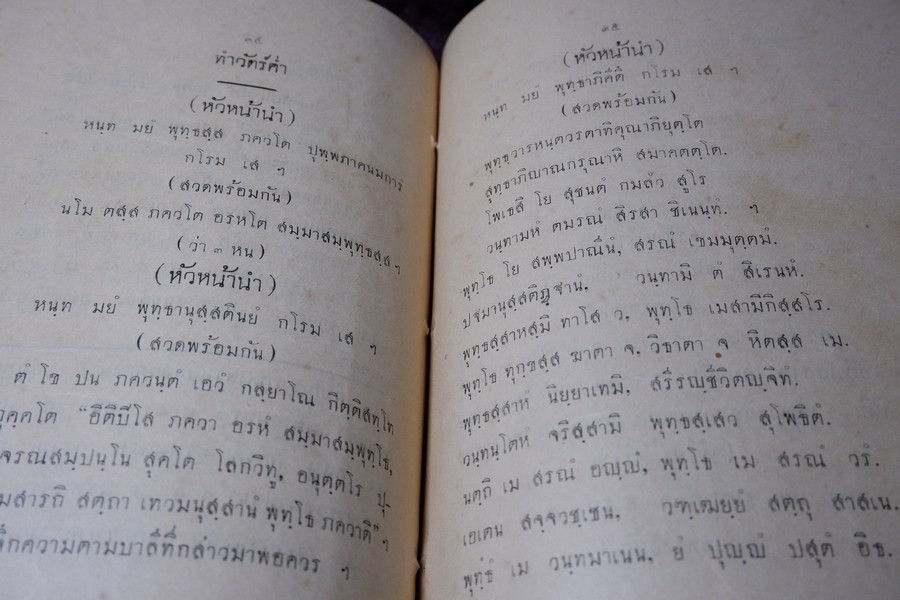 ๓๔
ทำวัตร์ค่ำ
(หัวหน้านำ)
หนฺท มยํ พุทฺธสฺส ภควโต ปุพฺพภาคนมการํ
กโรม เส ฯ
(สวดพร้อมกัน)
นโม ตสฺส ภควโต อรหโต สมฺมาสมฺพุทฺธสฺส ฯ
(ว่า ๓ หน)
(หัวหน้านำ)
หนฺท มยํ พุทฺธานุสฺสตินยํ กโรม เส ฯ
(สวดพร้อมกัน)
ตํ โข ปน ภควนฺตํ เอวํ กลฺยาโณ กิตฺติสทฺโท
วุคฺคโต "อิติปิโส ภควา อรหํ สมฺมาสมฺพุทฺโธ,
จรณสมฺปนฺโน สุคโต โลกวิทู, อนุตฺตโร ปุ-
มสารถิ สตฺถา เทวมนุสฺสานํ พุทฺโธ ภควาติ" ฯ
ึกความตามบาลีที่กล่าวมาพอควร ฯ
๓๕
(หัวหน้านำ)
หนฺท มยํ พุทฺธาภิคีตึ กโรม เส ฯ
(สวดพร้อมกัน)
พุทฺธวารหนฺตวรตาทิคุณาภิยุตฺโต
สุทฺธาภิญาณกรุณาหิ สมาคตตฺโต.
โพเธสิ โย สุชนตํ กมลํว สูโร
วนฺทามหํ ตมรณํ สิรสา ชิเนนฺทํ. ฯ
พุทฺโธ โย สพฺพปาณีนํ, สรณํ เขมมุตฺตมํ.
ปฐมานุสฺสติฏฺฐานํ, วนฺทามิ ตํ สิเรนหํ.
พุทฺธสฺสาหสฺมิ ทาโส ว, พุทฺโธ เมสามิกิสฺสโร.
พุทฺโธ ทุกฺขสฺส ฆาตา จ, วิธาตา จ หิตสฺส เม.
พุทฺธสฺสาหํ นิยฺยาเทมิ, สรีรญฺชีวิตญฺจิทํ.
วนฺทนฺโตหํ จริสฺสามิ พุทฺธสฺเสว สุโพธิตํ.
นตฺถิ เม สรณํ อญฺญํ, พุทฺโธ เม สรณํ วรํ.
เอเตน สจฺจวชฺเชน, วฑฺเฒยฺยํ สตฺถุ สาสเน.
พุทฺธํ เม วนฺทมาเนน, ยํ ปุญฺญํ ปสุตํ อิธ.